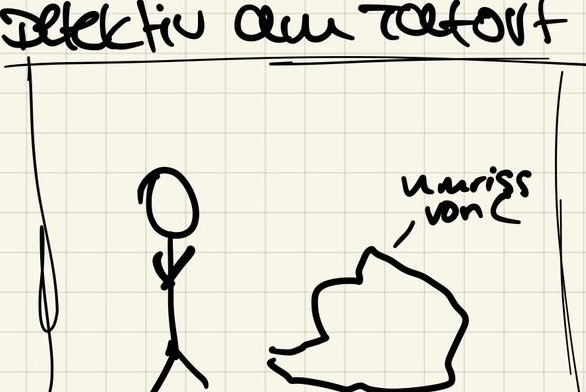 Detektiv am Tatort
Umriss
von C